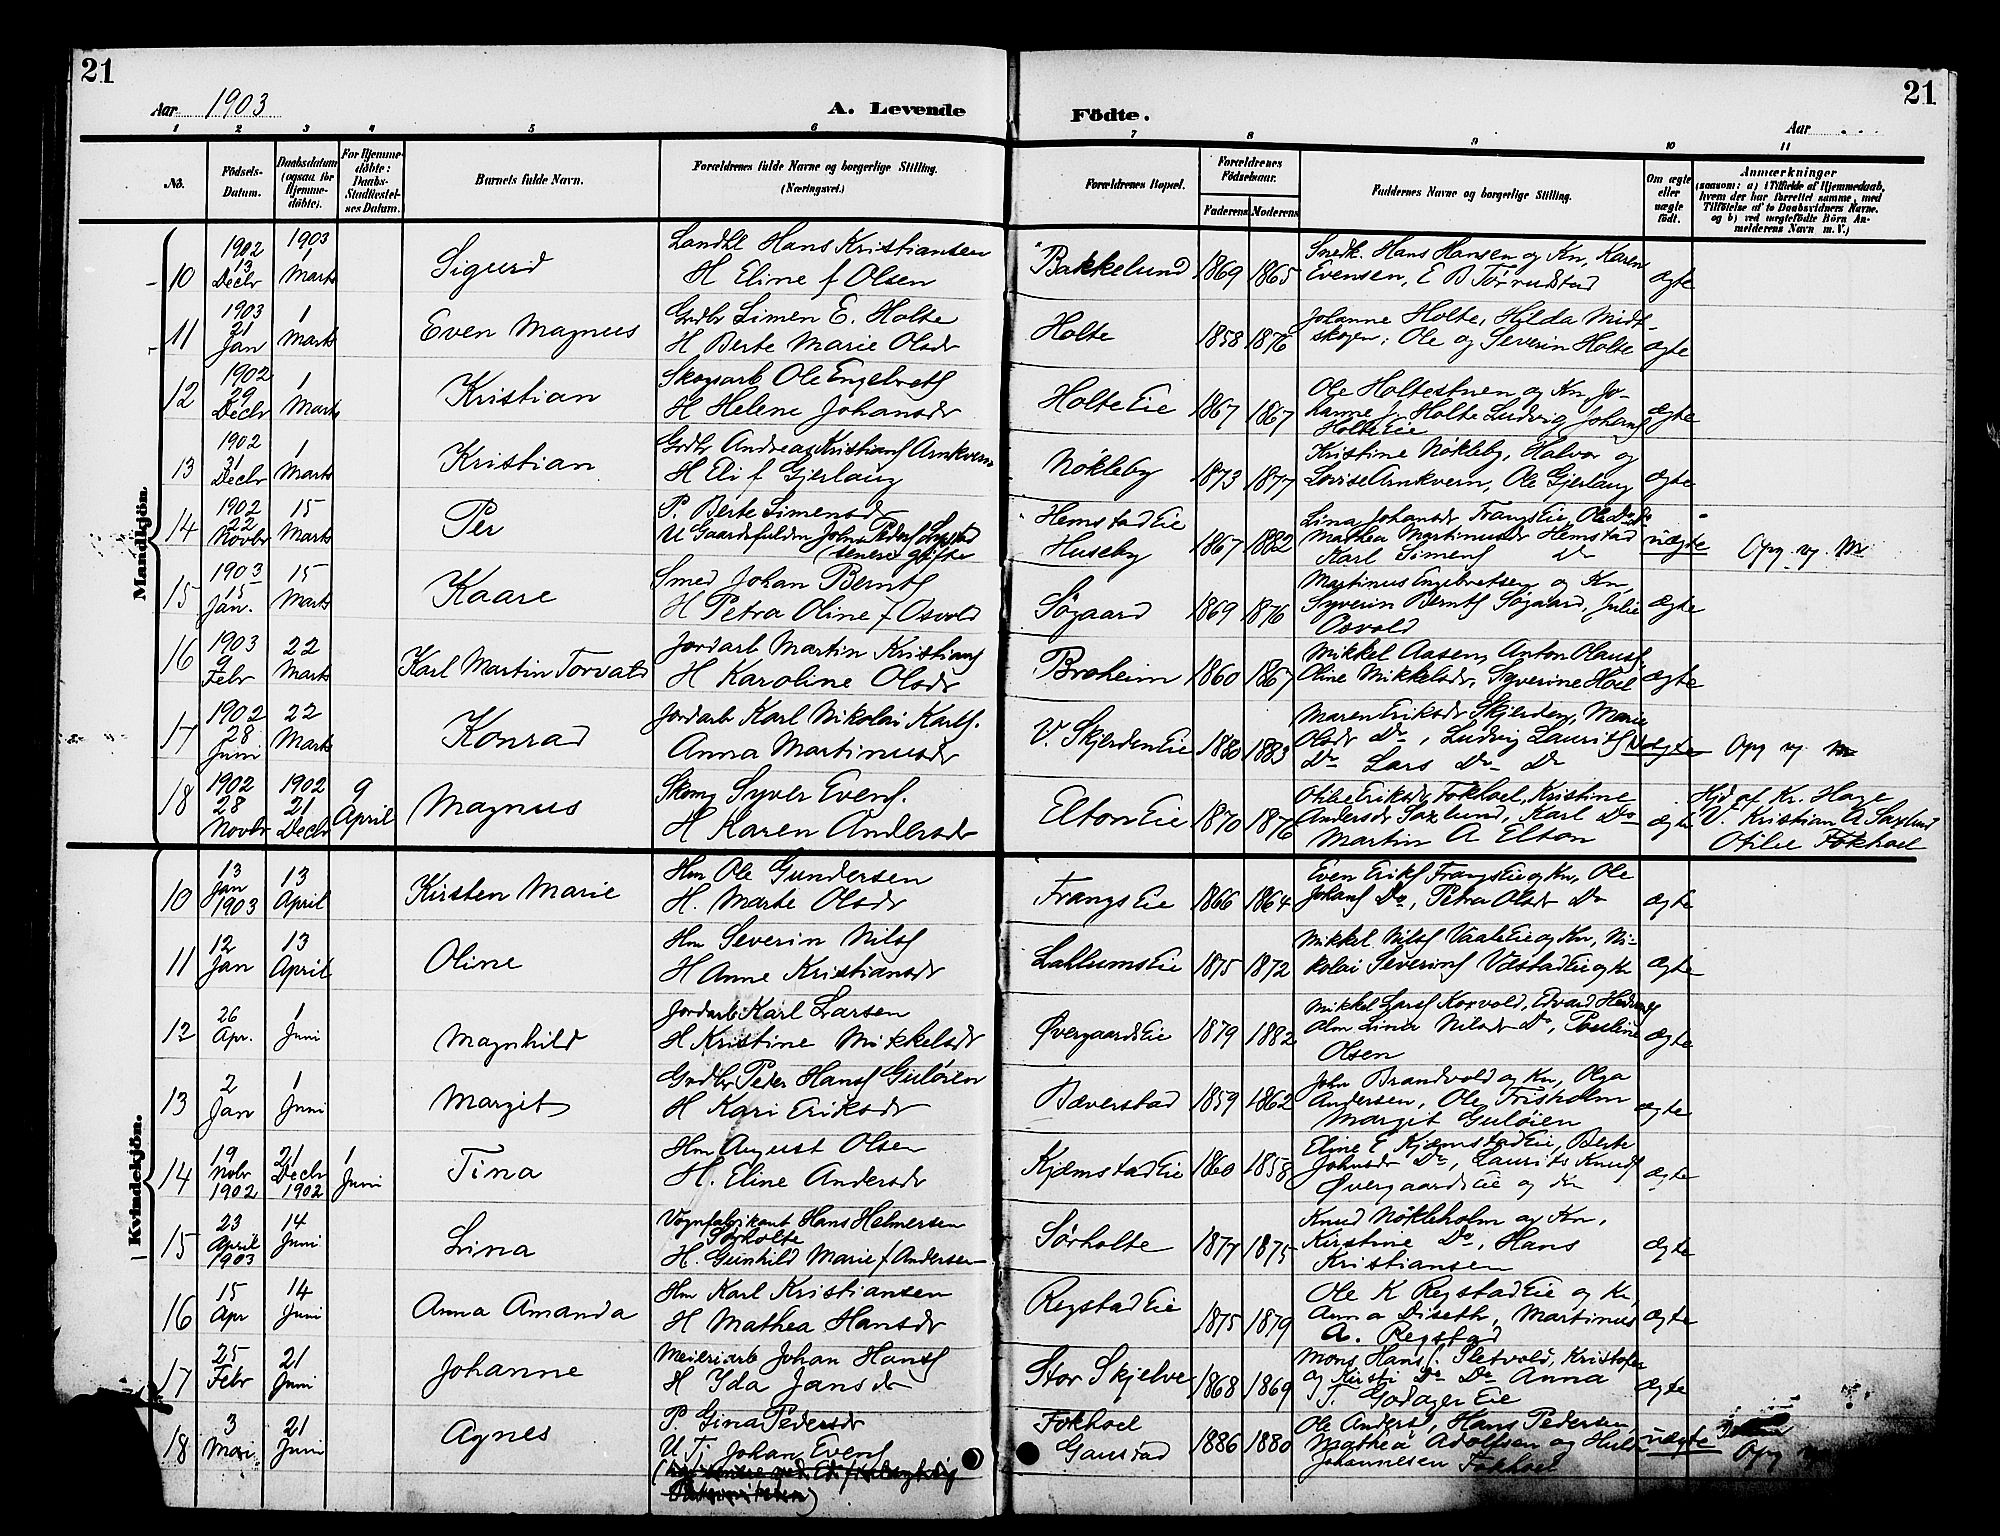 21
21
Aar 1903
A. Levende Födte.
Aar
1 2 3 4 5 6 7 8 9 10 11
No.
Födsels-Datum.
Daabsdatum (ogsaa for Hjemmedöbte).
For Hjemmedöbte: Daabs-Stadfæstelses Datum.
Barnets fulde Navn.
Forældrenes fulde Navne og borgerlige Stilling. (Næringsvei.)
Forældrenes Bopæl.
Forældrenes Födselsaar.
Faderens Moderens
Faddernes Navne og borgerlige Stilling.
Om ægte eller uægte födt.
Anmærkninger
(saasom: a) i Tilfælde af Hjemmedaab, hvem der har forrettet samme, med Tilföielse af to Daabsvidners Navne, og b) ved uægtefödte Börn Anmelderens Navn m. V.)
Mandkjön.
10 1902 13 Decbr 1903 1 Marts Sigurd Landhl Hans Kristiansen
H Eline f Olsen Bakkelund 1869 1865 Snedk. Hans Hansen og Kn, Karen
Evensen, E B Tørrudstad ægte
11 1903 21 Jan 1 Marts Even Magnus Grdbr Simen E. Holte
H Berte Marie Olsdr Holte 1858 1876 Johanne Holte, Hilda Midt-
skogen, Ole og Severin Holte ægte
12 1902 29 Decbr 1 Marts Kristian Skogsarb Ole Engebrets
H Helene Johansdr Holte Eie 1867 1867 Ole Holtestuen og Kn, Jo-
hanne J. Holte Ludvig Johans
Holte Eie ægte
13 1902 31 Decbr 1 Marts Kristian Grdbr Andreas Kristians Arnkvern
H Eli f Gjerlaug Nökleby 1873 1877 Kristine Nökleby, Halvor og
Lovise Arnkvern, Ole Gjerlaug ægte
14 1902 22 Novbr 15 Marts Per P. Berte Simensdr
U Gaardsfuldm Johs Peders
(senere gifte Hemstad Eie
Huseby 1867 1882 Lina Johansdr Frangs Eie, Ole Do Do
Mathea Martinusdr Hemstad
Karl Simens Do uægte Opg. v. M
15 1903 15 Jan. 15 Marts Kaare Smed Johan Bernts
H Petra Oline f Osvold Søgaard 1869 1876 Martinus Engebretsen og Kn,
Syverin Bernts Søgaard, Julie
Osvold ægte
16 1903 9 Febr 22 Marts Karl Martin Torvald Jordarb Martin Kristians
H Karoline Olsdr Broheim 1860 1867 Mikkel Aasen, Anton Olaus
Oline Mikkelsdr, Syverine Hoel ægte
17 1902 28 Juni 22 Marts Konrad Jordarb Karl Nikolai Karls.
Anna Martinusdr V. Skjerden Eie 1880 1883 Maren Eriksdr Skjerden, Marie
Olsdr Do, Ludvig Laurits
Do Lars Do Do uægte Opg v. M
18 1902 28 Novbr 1902 21 Decbr 9 April Magnus Skom Syver Evens.
H Karen Andersdr Elton Eie 1870 1876 Otilie Eriksdr Fokhoel, Kristine
Andersdr Saxlund, Karl Do
Martin A Elton ægte Hjd af Kr. Hage
V. Kristian A Saxlund
Otilie Fokhoel
Kvindekjön.
10 13 Jan 1903 13 April Kirsten Marie Hm Ole Gundersen
H. Marte Olsdr Frangs Eie 1866 1864 Even Eriks Frangs Eie og Kn, Ole
Johans Do, Petra Olsdr Do ægte
11 12 Jan 13 April Oline Hm Severin Nils
H Anne Kristiansdr Lallums Eie 1875 1872 Mikkel Nils Vaale Eie og Kn, Ni-
kolai Severins Væstad Eie og Kn ægte
12 26 Apr. 1 Juni Magnhild Jordarb Karl Larsen
H Kristine Mikkelsdr Øvergaards Eie 1879 1882 Mikkel Lars Korvold, Edvard
Olm Lina Nilsdr Do, Pauline
Olsen ægte
13 2 Jan 1 Juni Margit Grdbr Peder Hans Guløien
H Kari Eriksdr Bæverstad 1859 1862 John Brandvold og Kn, Olga
Andersen, Ole Frisholm
Margit Guløien ægte
14 19 Nobr 1902 21 Decbr 1902 1 Juni Tina Hm August Olsen
H. Eline Andersdr Kjemstad Eie 1860 1858 Eline E. Kjemstad Eie, Berte
Johnsdr Do, Laurits Knuds
Øvergaards Eie og ægte
15 23 April 1903 14 Juni Lina Vognfabrikant Hans Helmersen
Sörholte
H. Gunhild Marie f Andersen Sörholte 1877 1875 Knud Nökleholm og Kn,
Kirstine Do, Hans
Kristiansen ægte
16 15 Apr 14 Juni Anna Amanda Hm Karl Kristiansen
H Mathea Hansdr Regstad Eie 1875 1879 Ole K Regstad Eie og Kn,
Anna Diseth, Martinus
A. Regstad ægte
17 25 Febr 21 Juni Johanne Meieriarb Johan Hans
H Yda Jansdr Stor Skjelve 1868 1869 Mons Hans. Sletvold, Kristofer
og Kirsti Do Do Anna
T. Godager Eie ægte
18 3 Mai 21 Juni Agnes P Gina Pedersdr
U Tj Johan Evens Fokhoel
Gaustad 1886 1880 Ole Anders, Hans Pedersen
Mathea Adolfsen og
Johannesen Fokhoel uægte Opg